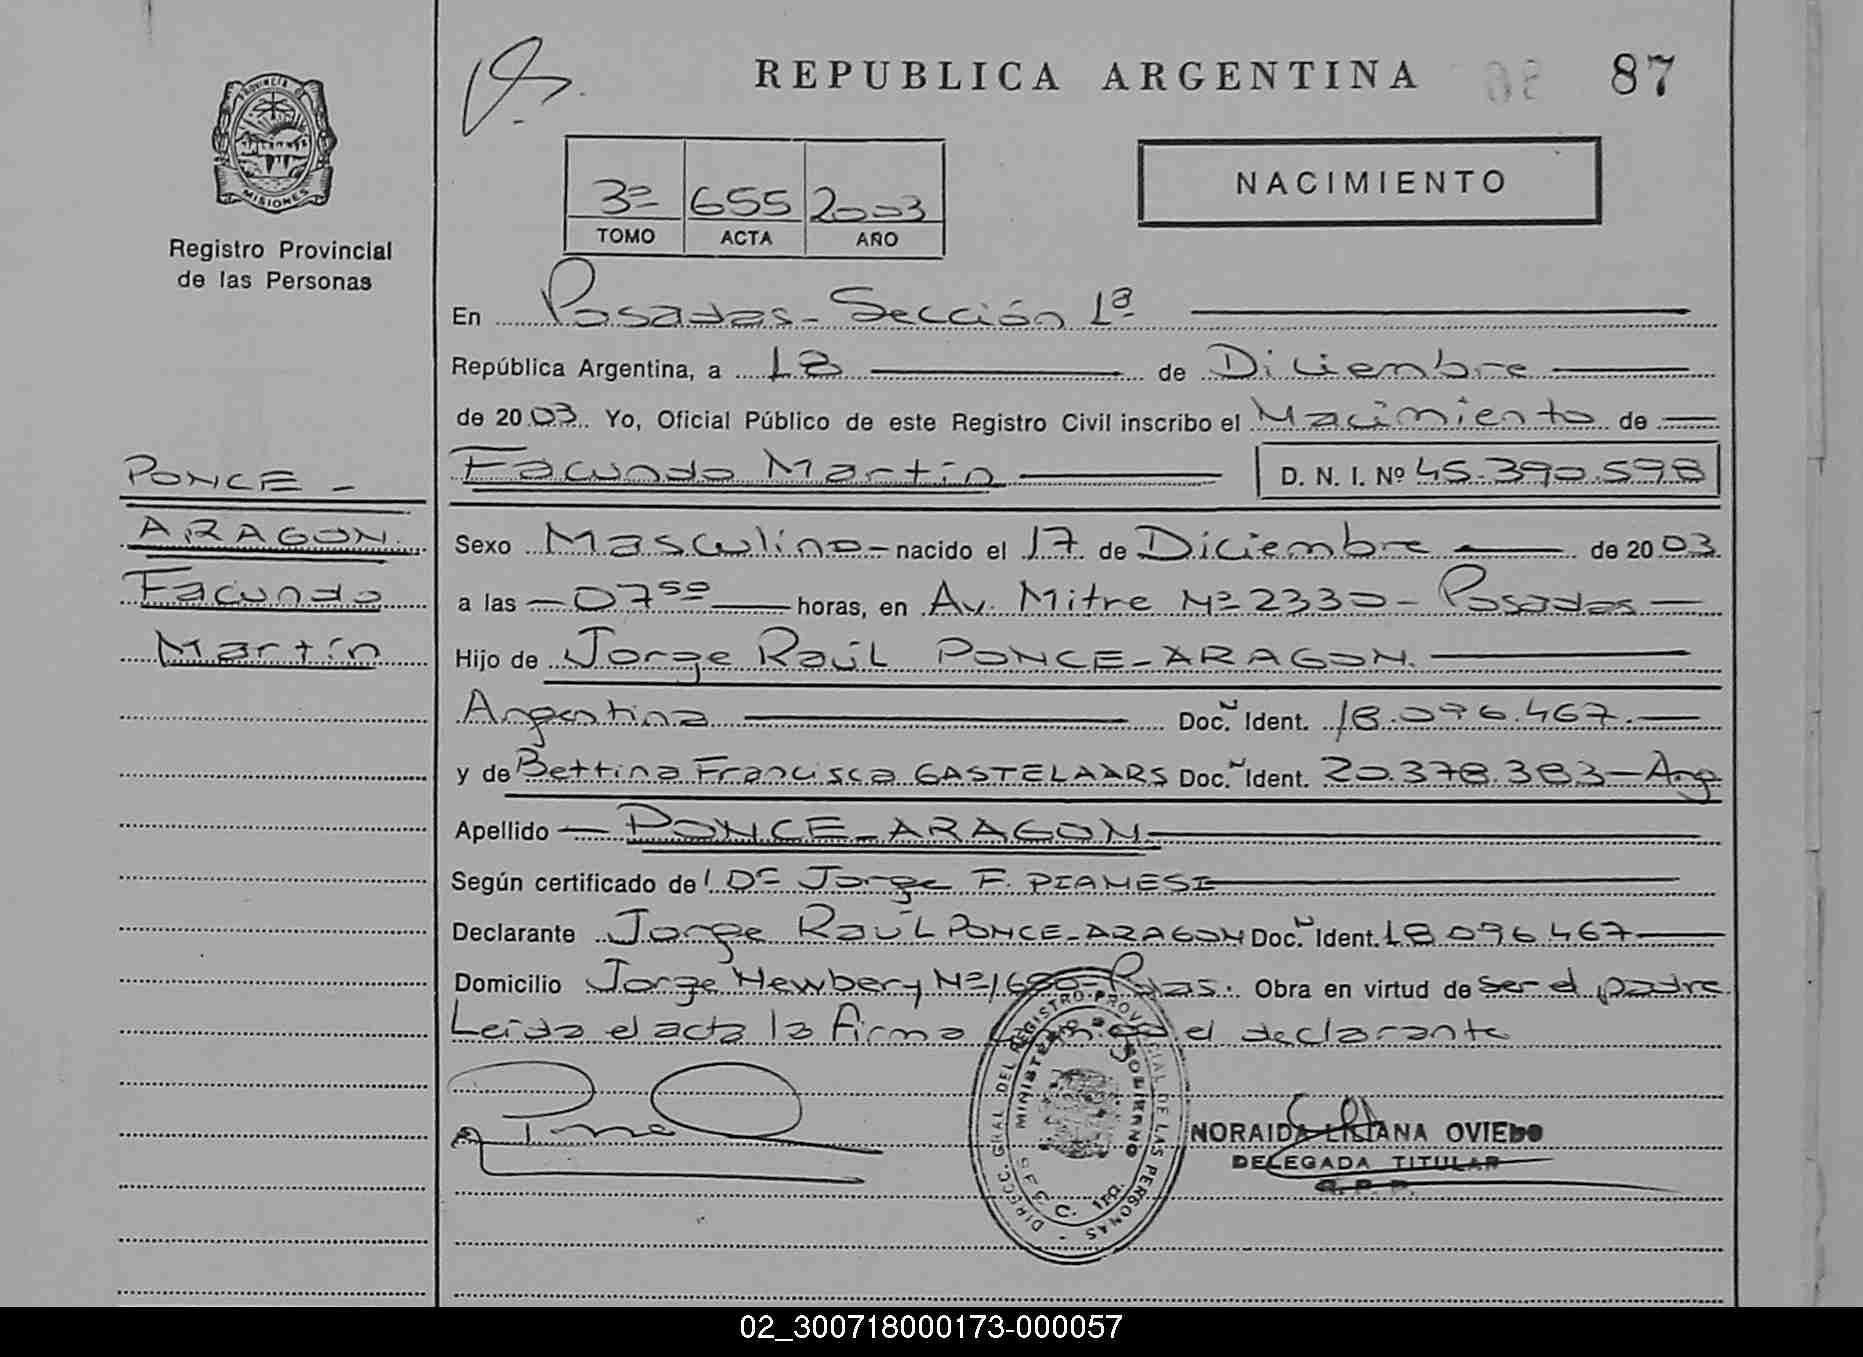 REPUBLICA ARGENTINA 87
PROVINCIA DE
MISIONES
Registro Provincial
de las Personas
NACIMIENTO
3º 655 2003
TOMO ACTA AÑO
En Posadas - Sección 1ª
República Argentina, a 18 de Diciembre
de 2003. Yo, Oficial Público de este Registro Civil inscribo el Nacimiento de
Facundo Martín D. N. I. Nº 45.390.598
PONCE -
ARAGON.
Facundo
Martín
Sexo Masculino - nacido el 17 de Diciembre de 2003.
a las 07⁵⁰ horas, en Av. Mitre Nº 2330 - Posadas
Hijo de Jorge Raúl PONCE-ARAGON.
Argentina Doc. Ident. 18.096.467.
y de Bettina Francisca GASTELAARS Doc. Ident. 20.378.383 - Arg
Apellido PONCE-ARAGON.
Según certificado de Dr Jorge F. PIAMESI
Declarante Jorge Raúl PONCE-ARAGON Doc. Ident. 18.096.467
Domicilio Jorge Newbery Nº 1680 - Pdas. Obra en virtud de ser el padre
Leida el acta la firma conmigo el declarante
DIRECC. GRAL DEL REGISTRO PROVINCIAL DE LAS PERSONAS
MINISTERIO DE GOBIERNO
NORAIDA LILIANA OVIEDO
DELEGADA TITULAR
R. P. P.
02_300718000173-000057